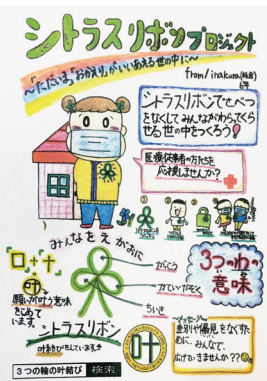 シトラスリボンプロジェクト
〜「ただいま」「おかえり」がいいあえる世の中に〜
シトラスリボンでせべつ
をなくしてみんながわらってくら
せる世の中をつくろう!
医療従事者の方たちを
応援しませんか?
みんなをえがおに
3つのわの
意味
口+十
叶
願いが叶う意味
をこめて
います。
がっこう
かていやしょくば
ちいき
シトラスリボン
叶結びといいます
叶
差別や偏見をなくすた
めに、みんなで、
広げていきませんか??
3つの輪の叶結び 検索